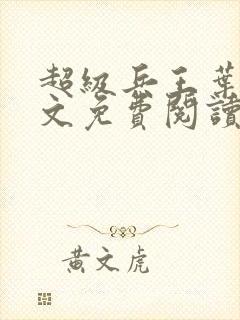 超級兵王葉
文免費閱讀
黃文虎